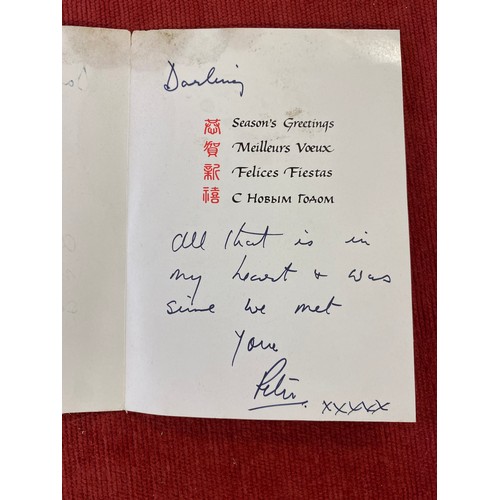 Darling
恭賀新禧
Season's Greetings
Meilleurs Vœux
Felices Fiestas
С Новым Годом
All that is in
my heart & was
since we met
Your
Peter. xxxxx